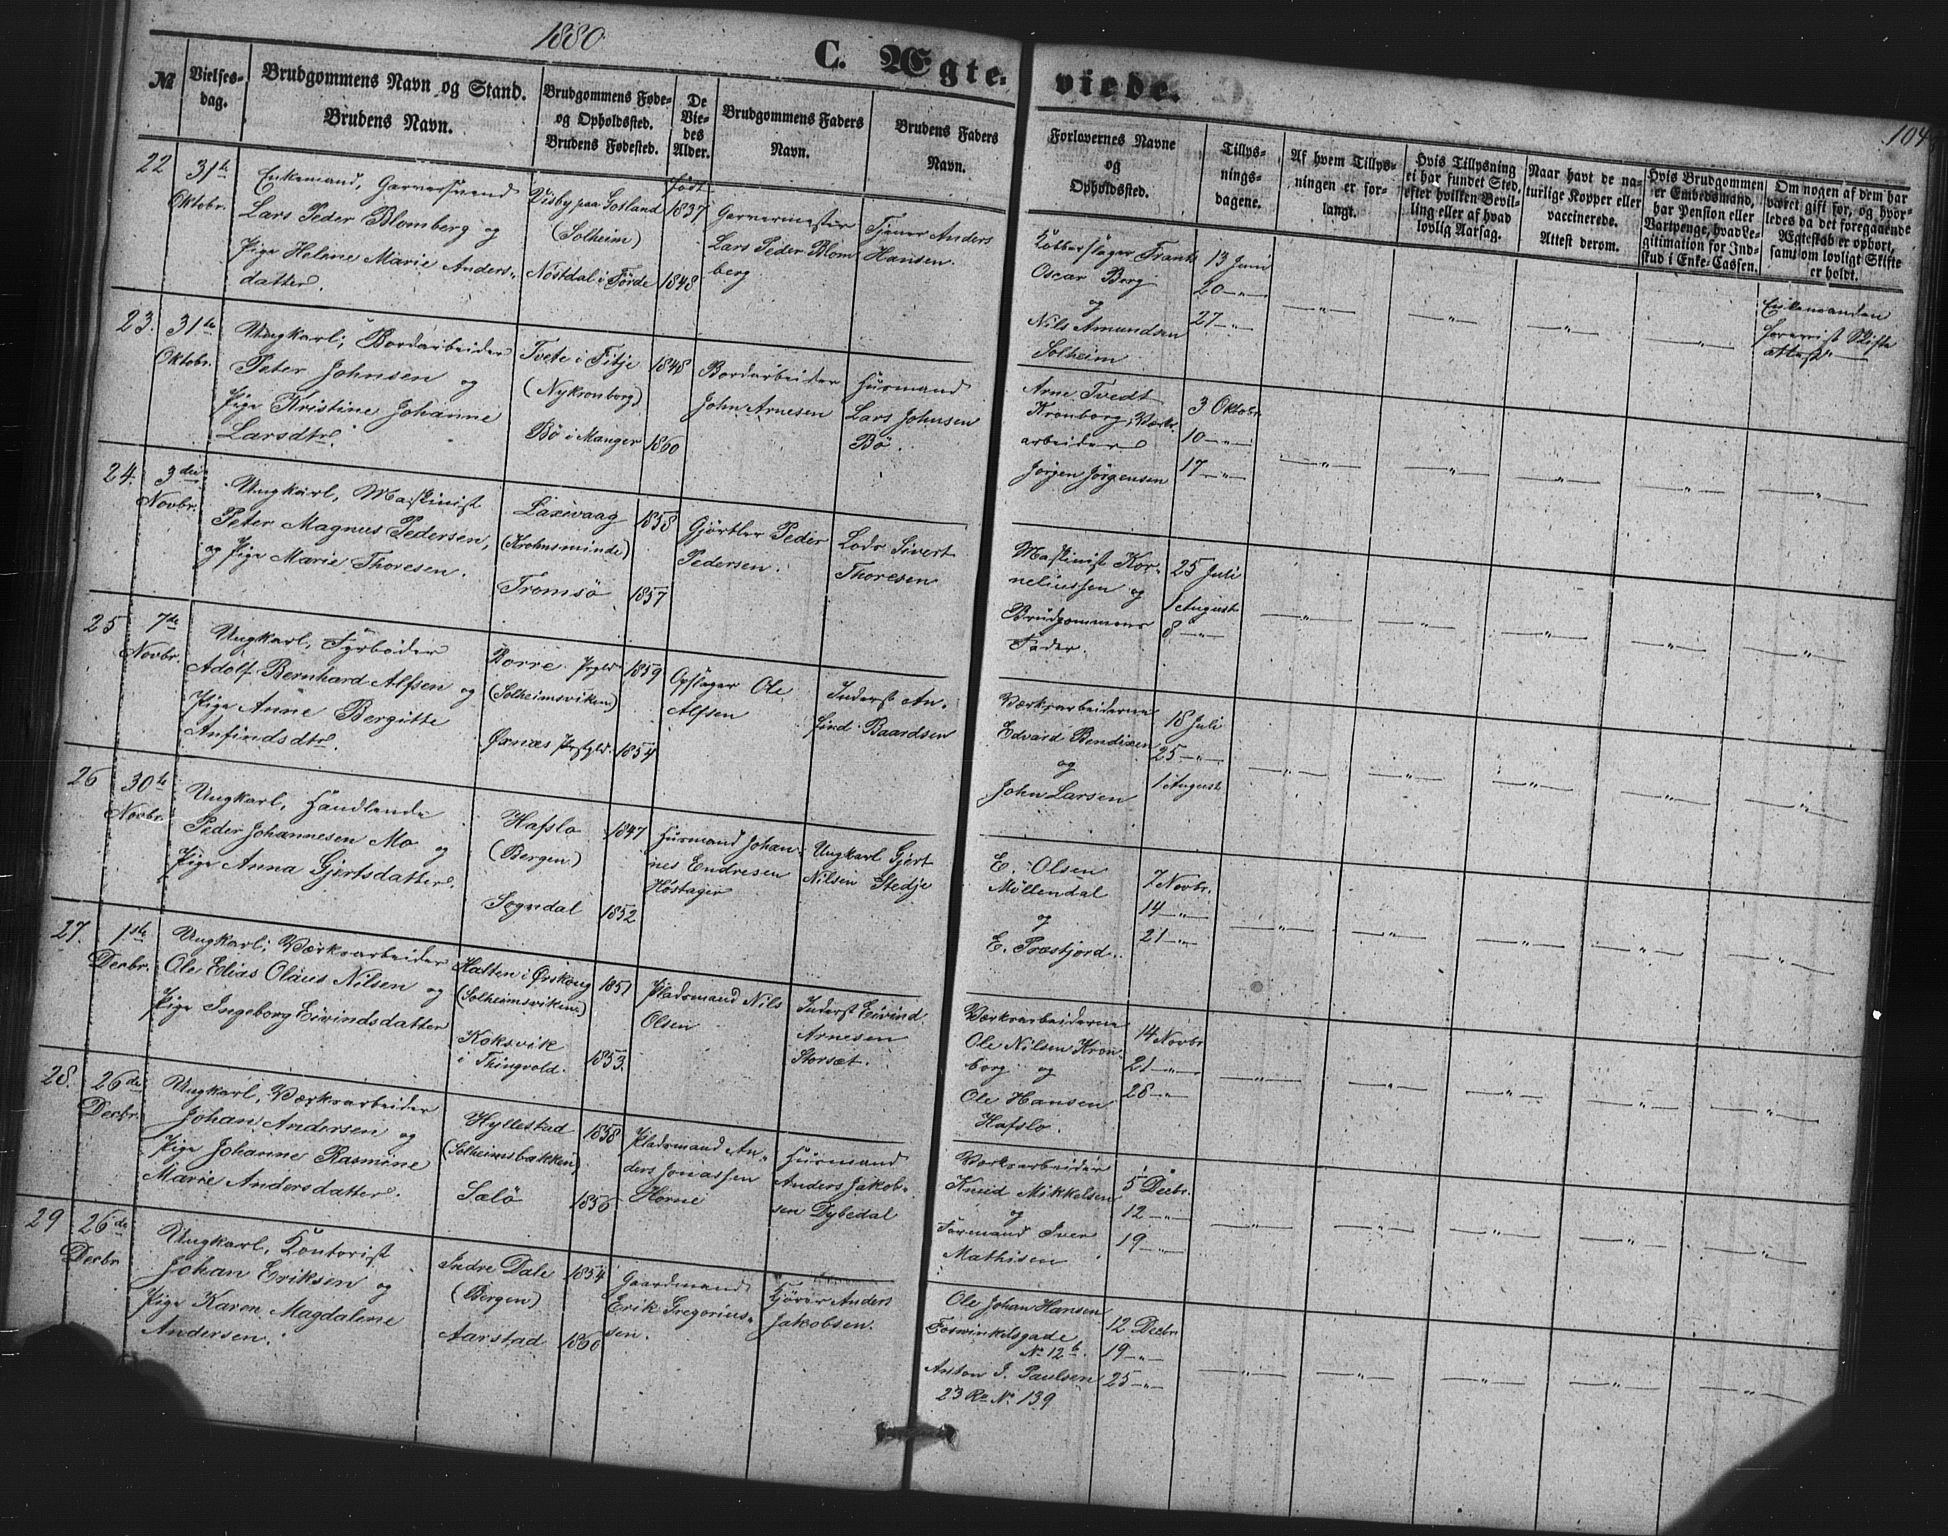 1880
C. Ægte-
viede.
104
№
Vielses-
dag.
Brudgommens Navn og Stand.
Brudens Navn.
Brudgommens Føde-
og Opholdssted.
Brudens Fødested.
De
Vie-
des
Alder.
Brudgommens Faders
Navn.
Brudens Faders
Navn.
Forlovernes Navne
og
Opholdssted.
Tillys-
nings-
dagene.
Af hvem Tillys-
ningen er for-
langt.
Hvis Tillysning
ei har fundet Sted,
efter hvilken Bevil-
ling eller af hvad
lovlig Aarsag.
Naar havt de na-
turlige Kopper eller
vaccinerede.
Attest derom.
Hvis Brudgommen
er Embedsmand,
har Pension eller
Vartpenge, hvad Le-
gitimation for Ind-
skud i Enke-Cassen.
Om nogen af dem har
været gift før, og hvor-
ledes da det foregaaende
Ægteskab er ophørt,
samt om lovligt Skifte
er holdt.
22
31te
Oktobr.
Enkemand, Garversvend
Lars Peder Blomberg og
Pige Helene Marie Anders-
datter.
Visby paa Gotland
(Solheim)
Nøstdal i Førde
Født
1837
1848
Garvermester
Lars Peder Blom
berg
Tjener Anders
Hansen.
Kobberslager Frantz
Oscar Berg
og
Nils Amundsen
Solheim
13 Juni
20 — " —
27 — " —
Enkemanden
foreviist Skifte
Attest
23.
31te
Oktobr.
Ungkarl, Bordarbeider
Peter Johnsen og
Pige Kristine Johanne
Larsdtr.
Tvete i Fitje
(Nykronborg)
Bø i Manger
1848
1860
Bordarbeider
John Arnesen
Husmand
Lars Johnsen
Bø.
Arne Tvedt
Kronborg, Værks-
arbeider
Jørgen Jørgensen
3 Oktobr
10 — " —
17 — " —
24.
3die
Novbr.
Ungkarl, Maskinist
Peter Magnus Pedersen,
og Pige Marie Thoresen.
Laxevaag
(Krohnsminde)
Tromsø
1858
1857
Gjørtler Peder
Pedersen.
Lods Sivert
Thoresen
Maskinist Kor-
neliussen og
Brudgommens
Fader.
25 Juli
1 August
8 — " —
25
7de
Novbr.
Ungkarl, Fyrbøder
Adolf Bernhard Alfsen og
Pige Anne Bergitte
Anfindsdtr.
Borre Prgld
(Solheimsviken)
Øxnæs Prstgld.
1859
1854
Opslager Ole
Alfsen
Inderst An-
find Baardsen
Værksarbeiderne
Edvard Bendixen
og
John Larsen
18 Juli
25 — " —
1 August
26
30te
Novbr.
Ungkarl, Handlende
Peder Johannesen Mo og
Pige Anna Gjertsdatter.
Hafslo
(Bergen)
Sogndal
1847
1852
Husmand Johan-
nes Endresen
Høstager
Ungkarl Gjert
Nilsen Stedje
E. Olsen
Møllendal
og
E. Præstjord.
7 Novbr.
14 — " —
21 — " —
27.
1ste
Decbr.
Ungkarl, Værksarbeider
Ole Elias Olaus Nilsen og
Pige Ingeborg Eivindsdatter
Hatten i Ørskoug
(Solheimsviken)
Koksvik
i Thingvold.
1851
1853.
Pladsmand Nils
Olsen
Inderst Eivind
Arnesen
Storsæt.
Værksarbeiderne
Ole Nilsen Kron-
borg og
Ole Hansen
Hafslo.
14 Novbr
21 — " —
28 — " —
28.
26de
Decbr.
Ungkarl, Værksarbeider
Johan Andersen og
Pige Johanne Rasmine
Marie Andersdatter.
Hyllestad
(Solheimsbakken)
Selø
1858
1856
Pladsmand An-
ders Jonassen
Horne
Husmand
Anders Jakob-
sen Dybedal
Værksarbeider
Knud Mikkelsen
og
Formand Iver
Mathisen
5 Decbr.
12 — " —
19 — " —
29
26de
Decbr
Ungkarl, Kontorist
Johan Eriksen og
Pige Karen Magdalene
Andersen.
Indre Dale
(Bergen)
Aarstad
1854
1860
Gaardmand
Erik Gregorius-
sen.
Kjører Anders
Jakobsen.
Ole Johan Hansen
Foswinkelsgade
No 12b
Anton J. Paulsen
23 Ro No 139
12 Decbr
19 — " —
25 — " —